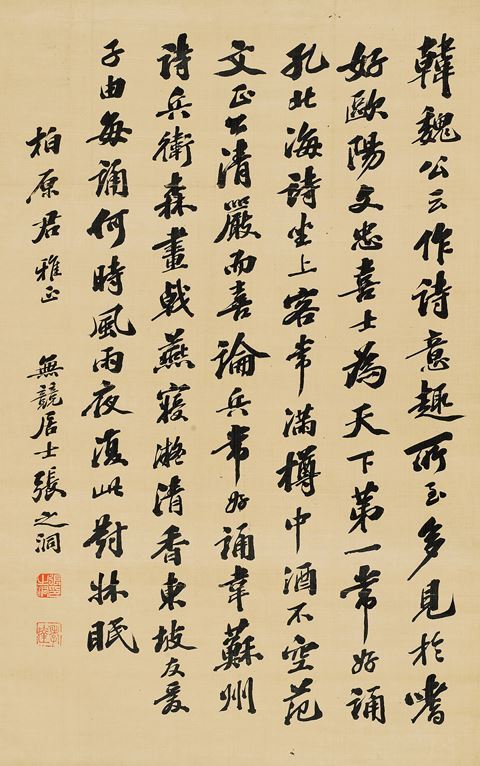 韓魏公云作詩意趣所至多見於嗜
好歐陽文忠喜士為天下第一常好誦
孔北海詩坐上客常滿樽中酒不空范
文正公清嚴而喜論兵常好誦韋蘇州
詩兵衛森畫戟燕寢凝清香東坡友愛
子由每誦何時風雨夜復此對牀眠
柏原君雅正 無競居士張之洞